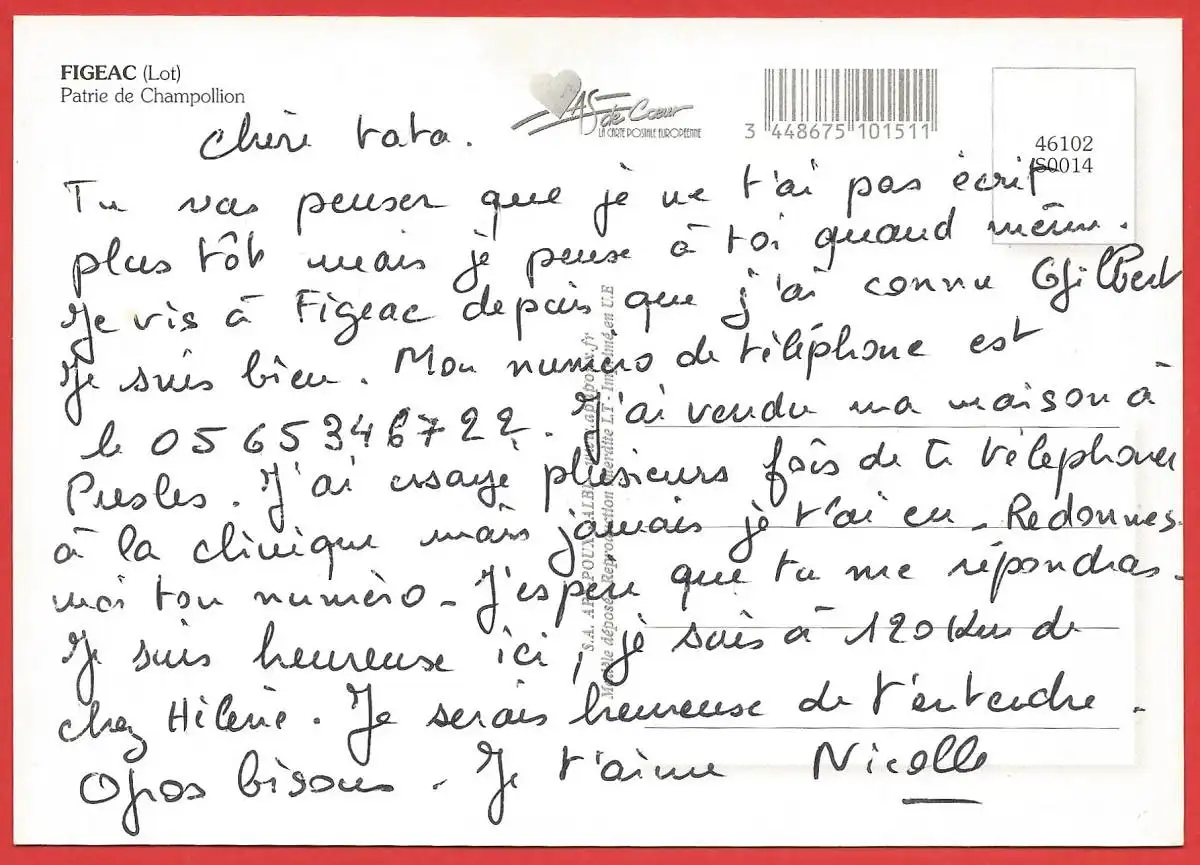 FIGEAC (Lot)
Patrie de Champollion
AS de Cœur
LA CARTE POSTALE EUROPÉENNE
3 448675 101511
46102
IS0014
Chère tata.
Tu vas penser que je ne t'ai pas écrit
plus tôt mais je pense à toi quand même.
Je vis à Figeac depuis que j'ai connu Gilbert
Je suis bien. Mon numéro de téléphone est
le 05 65 34 67 22. J'ai vendu ma maison à
Presles. J'ai essayé plusieurs fois de te téléphoner
à la clinique mais jamais je t'ai eu. Redonnes
moi ton numéro. J'espère que tu me répondras.
Je suis heureuse ici, je suis à 120 Km de
chez Hélène. Je serais heureuse de t'entendre.
Gros bisous. Je t'aime Nicolle
Modèle déposé Reproduction interdite LT - Imprimé en U.E